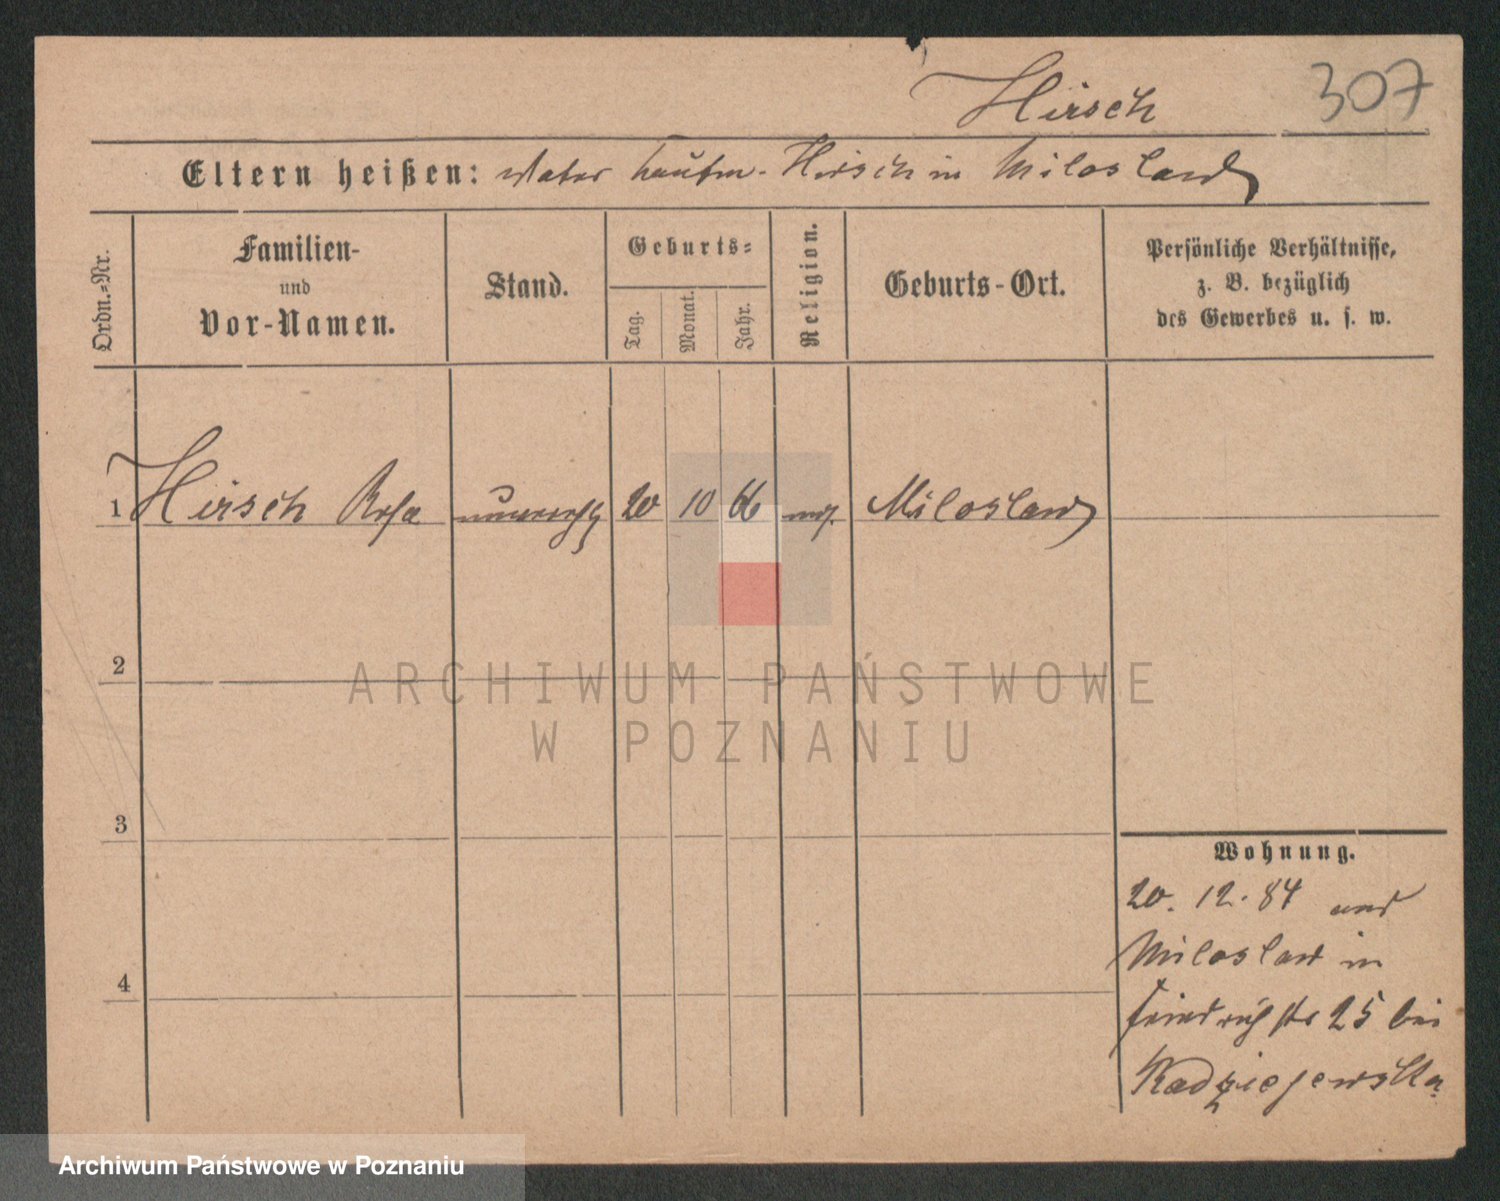 Hirsch
307
Eltern heißen: Vater Kaufm. Hirsch in Miloslaw
Ordn.-Nr.
Familien-
und
Vor-Namen.
Stand.
Geburts-
Tag.
Monat.
Jahr.
Religion.
Geburts-Ort.
Persönliche Verhältnisse,
z. B. bezüglich
des Gewerbes u. s. w.
1 Hirsch Rosa 20 10 66 mos. Miloslaw
2
3
4
ARCHIWUM PAŃSTWOWE
W POZNANIU
Wohnung.
20. 12. 84 aus
Miloslaw in
Friedrichstr 25 bei
Radziejewska
Archiwum Państwowe w Poznaniu